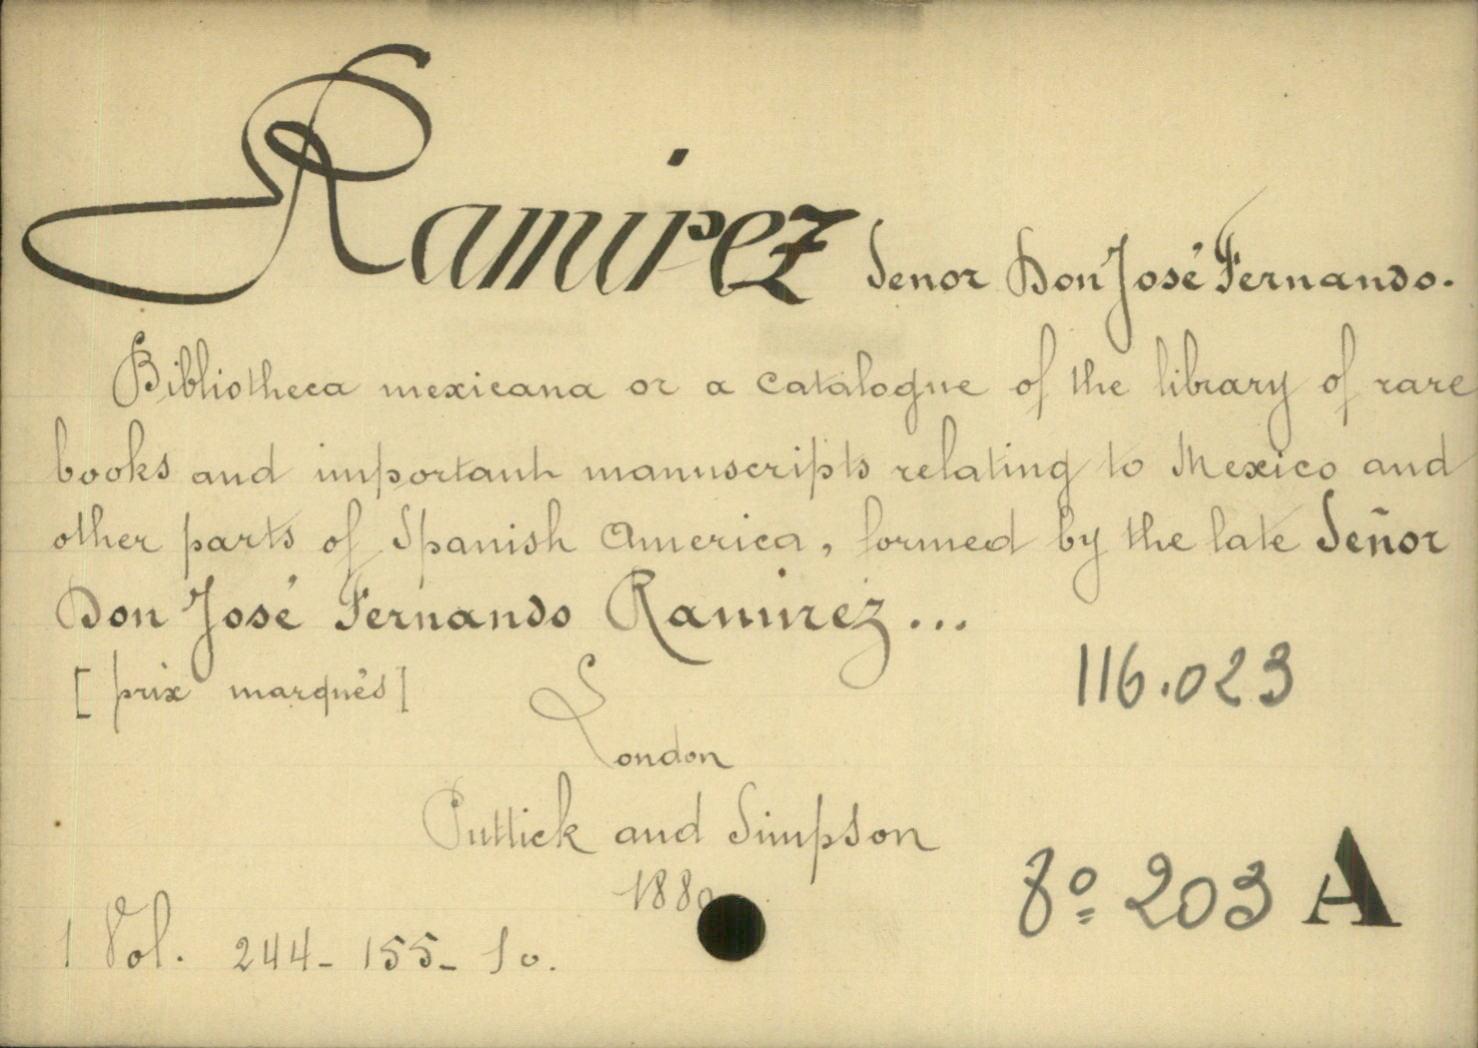 Ramirez Senor Don José Fernando.
Bibliotheca mexicana or a catalogue of the library of rare
books and important manuscripts relating to Mexico and
other parts of Spanish America, formed by the late Señor
Don José Fernando Ramirez...
[prix marqués]
116.023
London
Puttick and Simpson
1880
8º 203 A
1 Vol. 244-155-10.